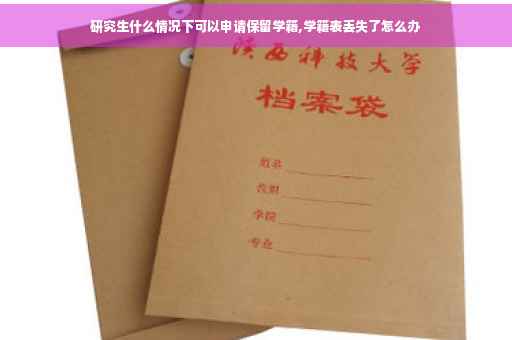 研究生什么情况下可以申请保留学籍,学籍表丢失了怎么办
陕西科技大学
档案袋
姓名
学院
专业